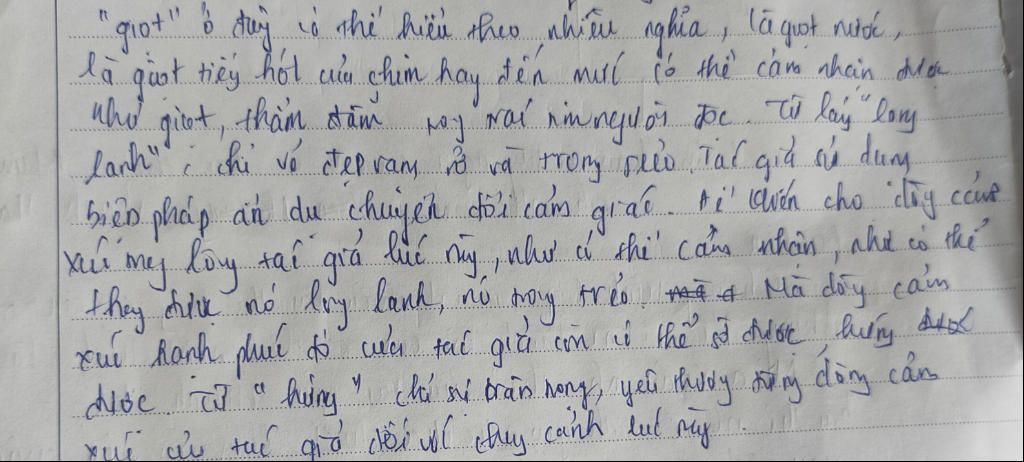 "giọt" ở đây có thể hiểu theo nhiều nghĩa, là giọt nước,
là giọt tiếng hót của chim hay đến mức có thể cảm nhận được
như giọt, thấm đẫm trong trái tim người đọc. Từ láy "long
lanh" chỉ vẻ đẹp rạng rỡ và trong trẻo. Tác giả sử dụng
biện pháp ẩn dụ chuyển đổi cảm giác. để khiến cho dòng cảm
xúc trong lòng tác giả lúc này, như có thể cảm nhận, như có thể
thấy được nó long lanh, nó trong trẻo. Mà dòng cảm
xúc hạnh phúc đó của tác giả còn có thể sờ được hứng
được. Từ "hứng" chỉ sự trân trọng, yêu thương từng dòng cảm
xúc của tác giả đối với cảnh lúc này.